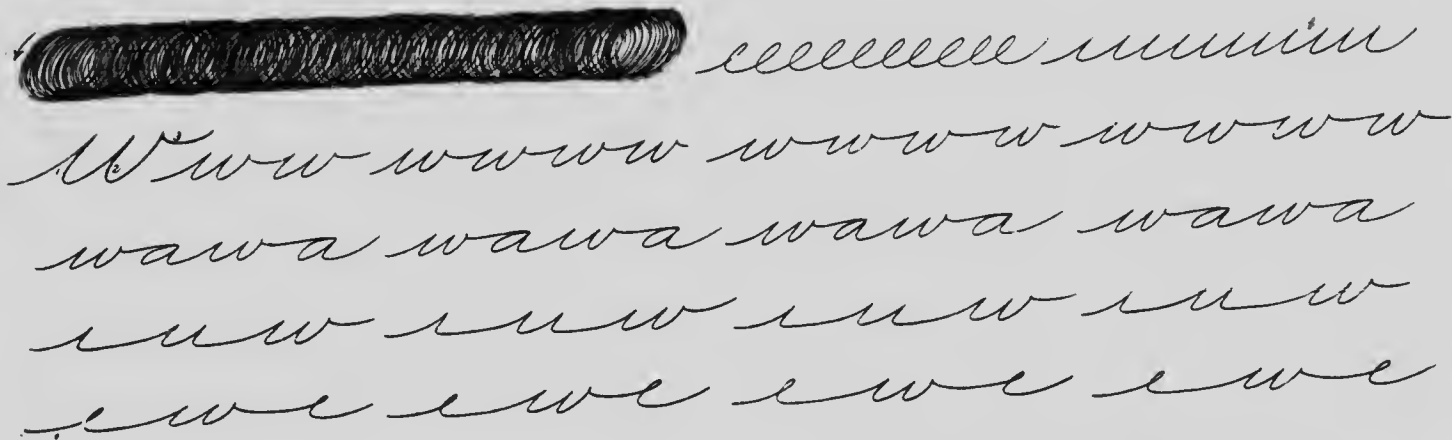 eeeeeeeee uuuuuu
W w w w w w w w w w w w w w
wawa wawa wawa wawa
i u w i u w i u w i u w
e w e e w e e w e e w e